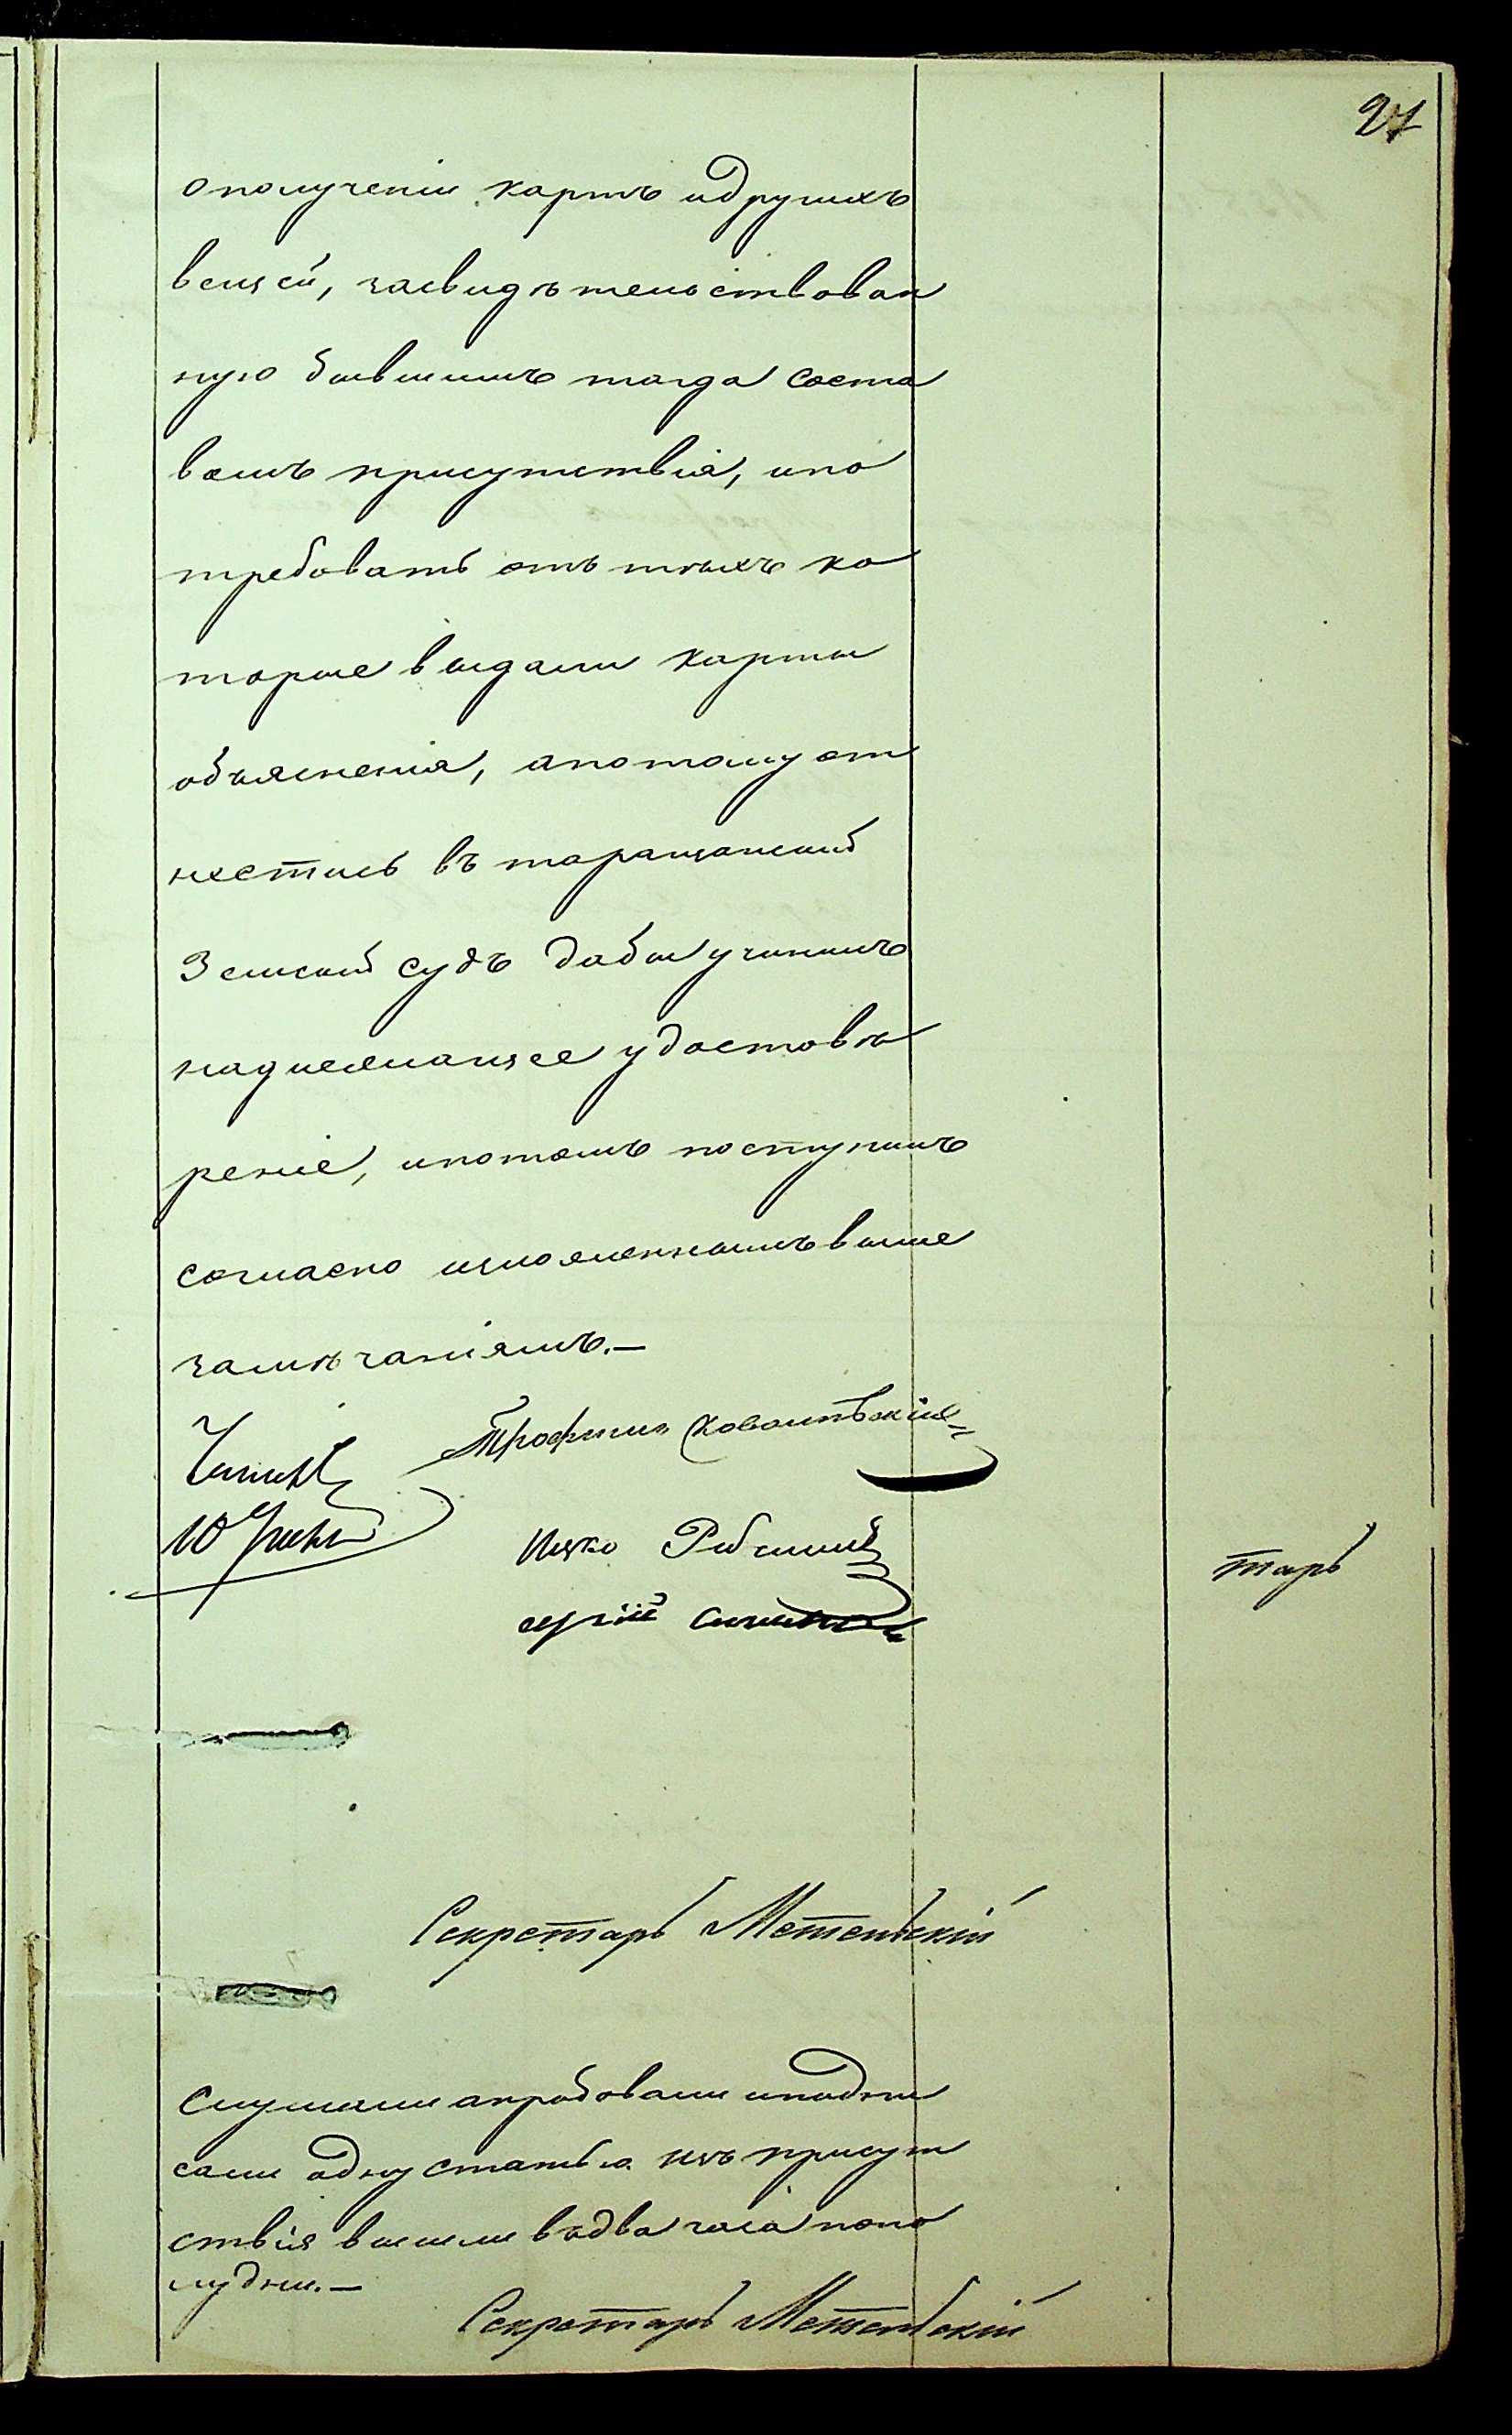 27
о полученіи картъ и другихъ
вещей, засвидѣтельствован
ную бывшимъ тогда соста
вомъ присутствія, и по
требовать отъ тѣхъ ко
торые выдали карты
объясненія, а потому от
нестись въ таращанскій
Земскій судъ дабы учинилъ
надлежащее удостовѣ
реніе, и потомъ поступилъ
согласно изложеннымъ выше
замѣчаніямъ.—
Трофимъ
Ицко
тарь
Секретарь
Слушали апробовали и подпи
сали одну статью изъ присут
ствія вышли въ два часа попо
лудни.—
Секретарь